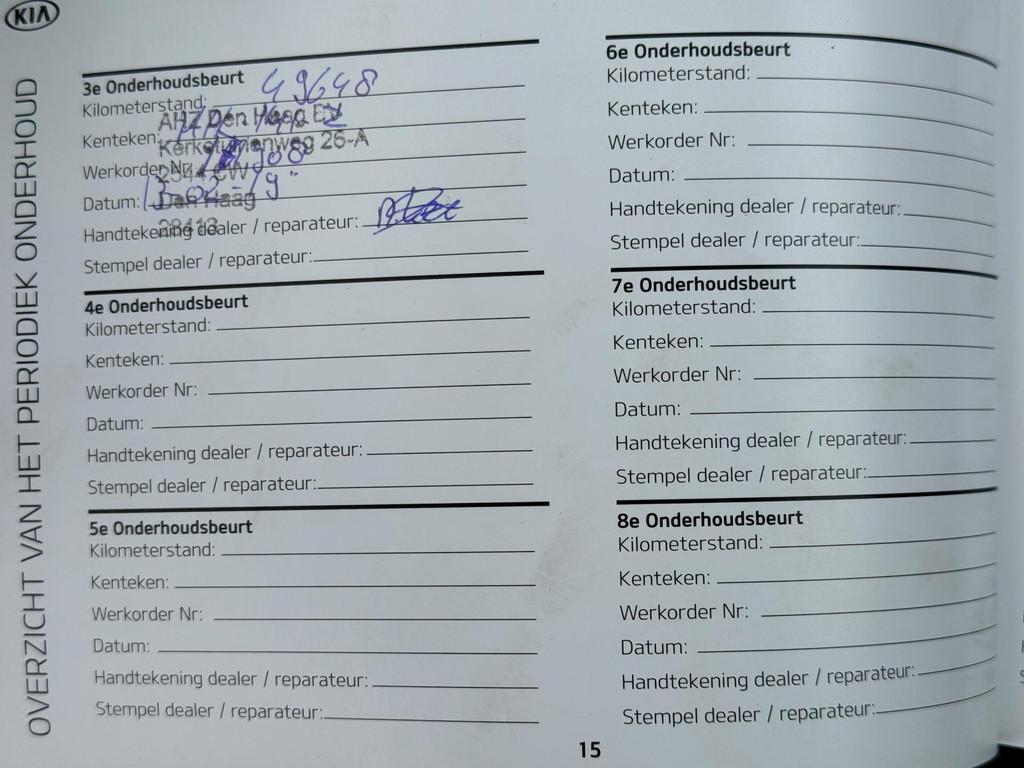 KIA
OVERZICHT VAN HET PERIODIEK ONDERHOUD
3e Onderhoudsbeurt
Kilometerstand: 49648
Kenteken:
Werkorder Nr:
Datum: 13-02-19
Handtekening dealer / reparateur:
Stempel dealer / reparateur:
AHZ Den Haag BV
Kerketuinenweg 26-A
2544 CW
Den Haag
28413
4e Onderhoudsbeurt
Kilometerstand:
Kenteken:
Werkorder Nr:
Datum:
Handtekening dealer / reparateur:
Stempel dealer / reparateur:
5e Onderhoudsbeurt
Kilometerstand:
Kenteken:
Werkorder Nr:
Datum:
Handtekening dealer / reparateur:
Stempel dealer / reparateur:
6e Onderhoudsbeurt
Kilometerstand:
Kenteken:
Werkorder Nr:
Datum:
Handtekening dealer / reparateur:
Stempel dealer / reparateur:
7e Onderhoudsbeurt
Kilometerstand:
Kenteken:
Werkorder Nr:
Datum:
Handtekening dealer / reparateur:
Stempel dealer / reparateur:
8e Onderhoudsbeurt
Kilometerstand:
Kenteken:
Werkorder Nr:
Datum:
Handtekening dealer / reparateur:
Stempel dealer / reparateur:
15